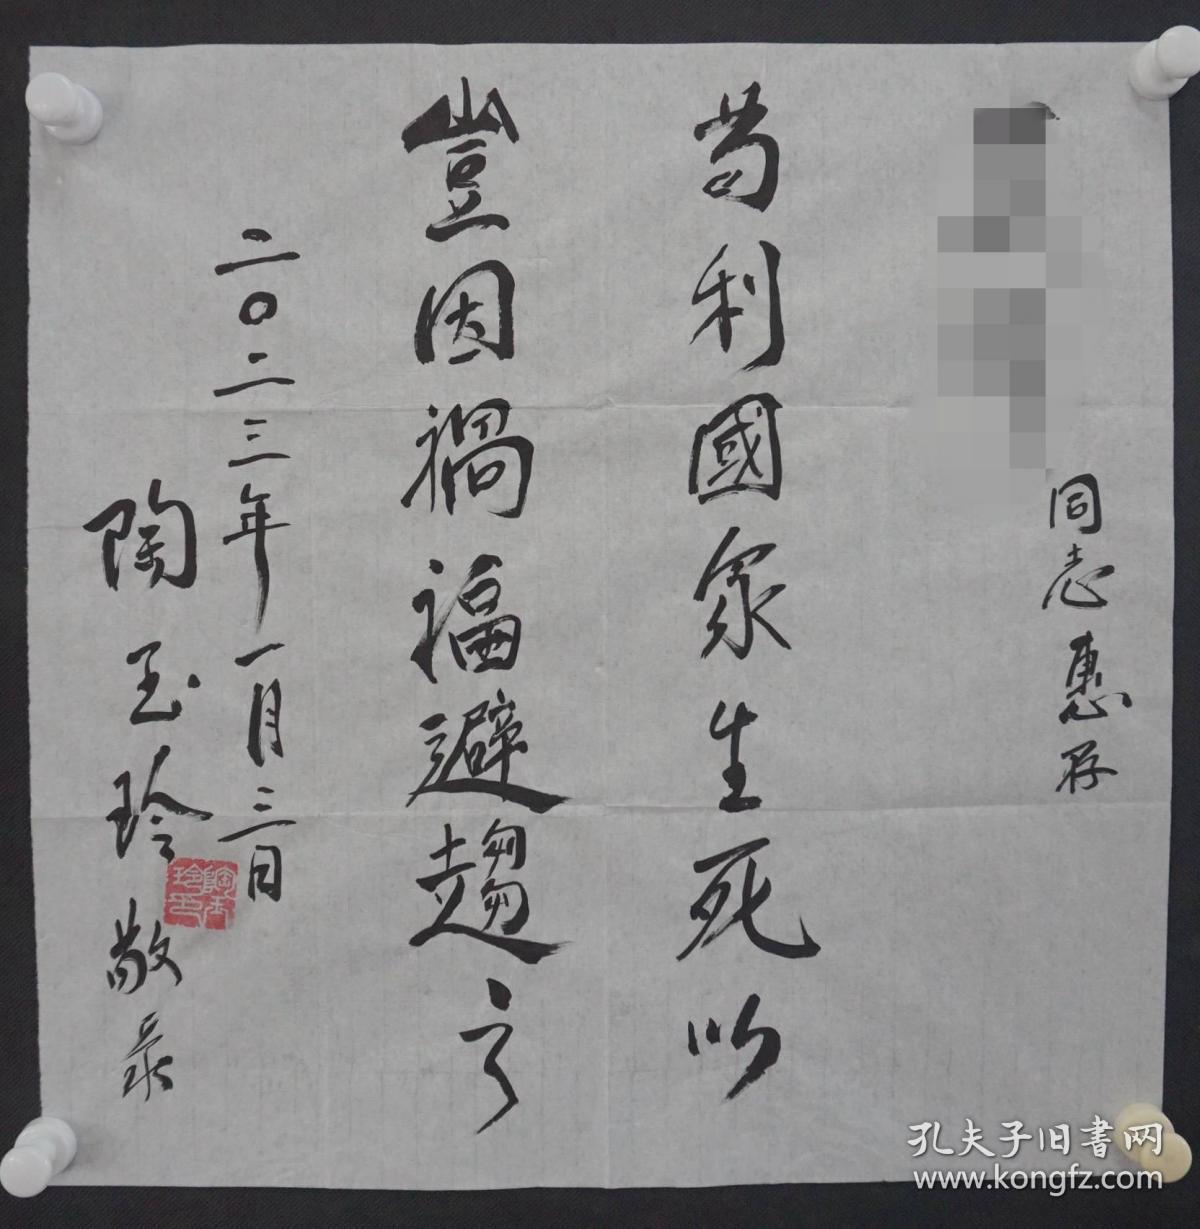 同志惠存
苟利國家生死以
豈因禍福避趨之
二〇二三年一月三日
陶玉玲敬录
陶玉玲印
孔夫子旧书网
www.kongfz.com